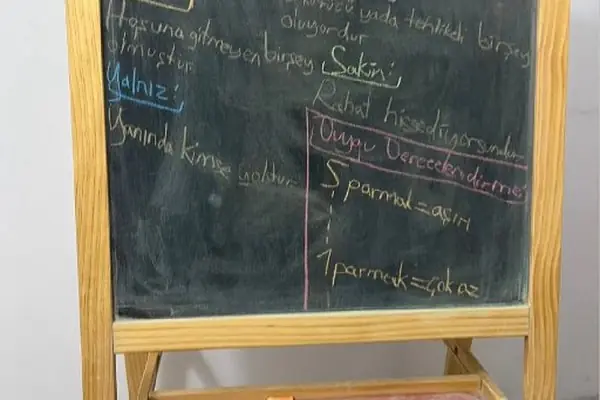 Hoşuna gitmeyen birşey
olmuştur
Yalnız:
Yanında kimse yoktur
yada tehlikeli birşey
oluyordur
Sakin:
Rahat hissediyorsundur
Duygu Derecelendirmesi
5 parmak = aşırı
1 parmak = çok az